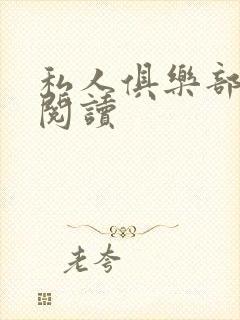 私人俱樂部
閱讀
老夸